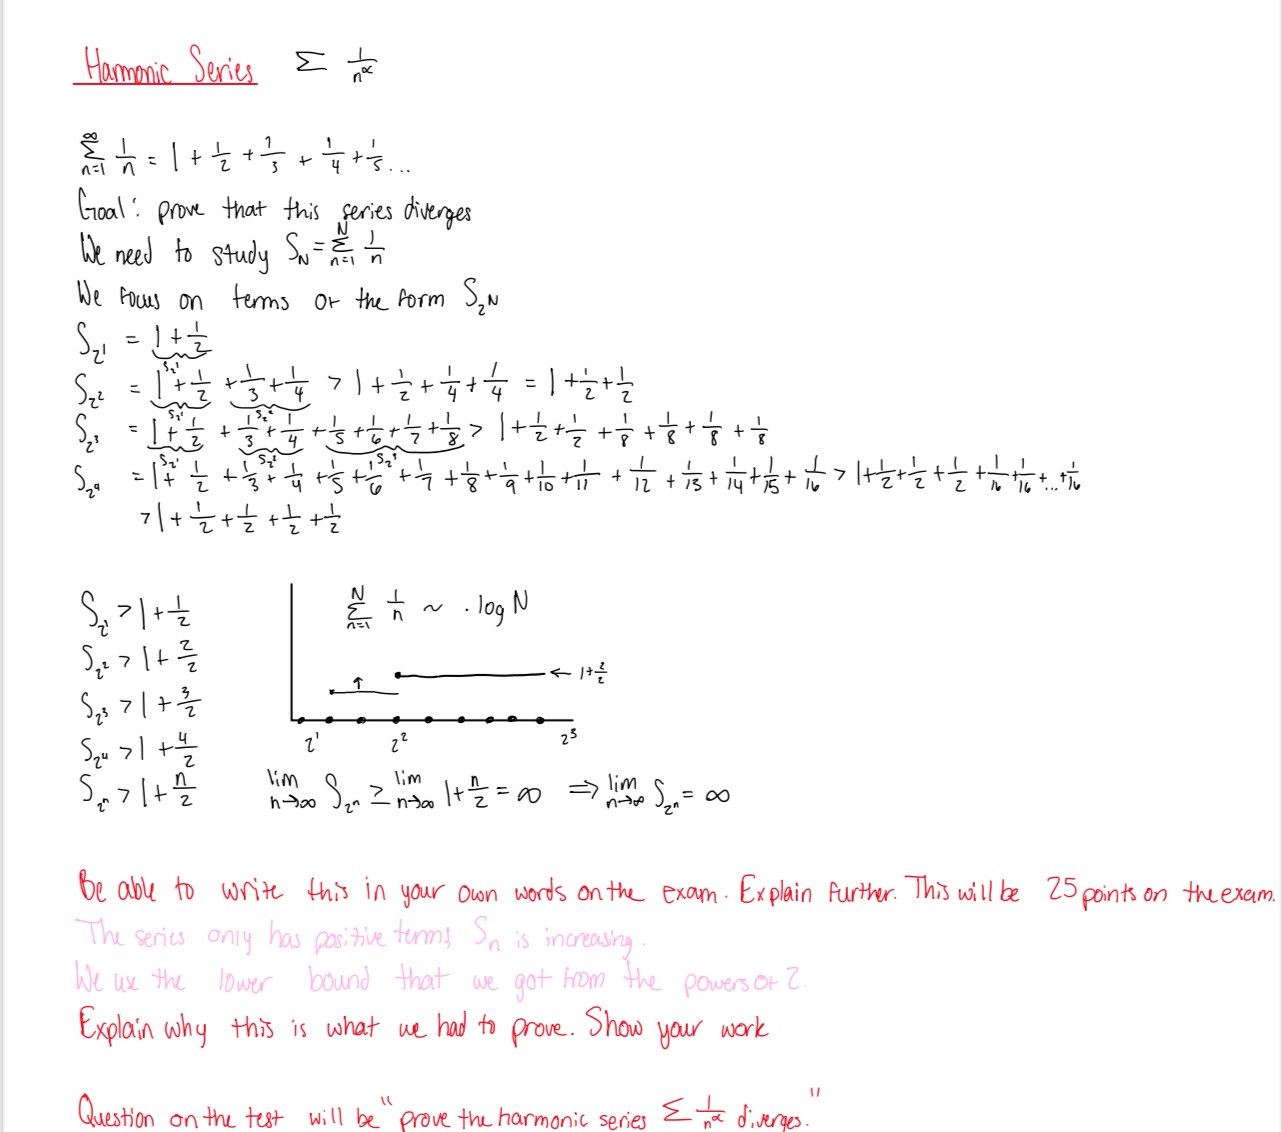 Harmonic Series Σ 1/n^α
∞Σn=1 1/n = 1 + 1/2 + 1/3 + 1/4 + 1/5 ...
Goal: prove that this series diverges
We need to study S_N = NΣn=1 1/n
We focus on terms of the form S_2^N
S_2^1 = 1 + 1/2
S_2^1
S_2^2 = 1 + 1/2 + 1/3 + 1/4 > 1 + 1/2 + 1/4 + 1/4 = 1 + 1/2 + 1/2
S_2^1 S_2^2
S_2^3 = 1 + 1/2 + 1/3 + 1/4 + 1/5 + 1/6 + 1/7 + 1/8 > 1 + 1/2 + 1/2 + 1/8 + 1/8 + 1/8 + 1/8
S_2^1 S_2^2 S_2^3
S_2^4 = 1 + 1/2 + 1/3 + 1/4 + 1/5 + 1/6 + 1/7 + 1/8 + 1/9 + 1/10 + 1/11 + 1/12 + 1/13 + 1/14 + 1/15 + 1/16 > 1 + 1/2 + 1/2 + 1/2 + 1/16 + 1/16 + ... + 1/16
> 1 + 1/2 + 1/2 + 1/2 + 1/2
S_2^1 > 1 + 1/2
S_2^2 > 1 + 2/2
S_2^3 > 1 + 3/2
S_2^4 > 1 + 4/2
S_2^n > 1 + n/2
NΣn=1 1/n ~ . log N
↑ ← 1 + 2/2
2^1 2^2 2^3
lim n→∞ S_2^n ≥ lim n→∞ 1 + n/2 = ∞ ⇒ lim n→∞ S_2^n = ∞
Be able to write this in your own words on the exam. Explain further. This will be 25 points on the exam.
The series only has positive terms, S_n is increasing.
We use the lower bound that we got from the powers of 2.
Explain why this is what we had to prove. Show your work
Question on the test will be "prove the harmonic series Σ 1/n^α diverges."